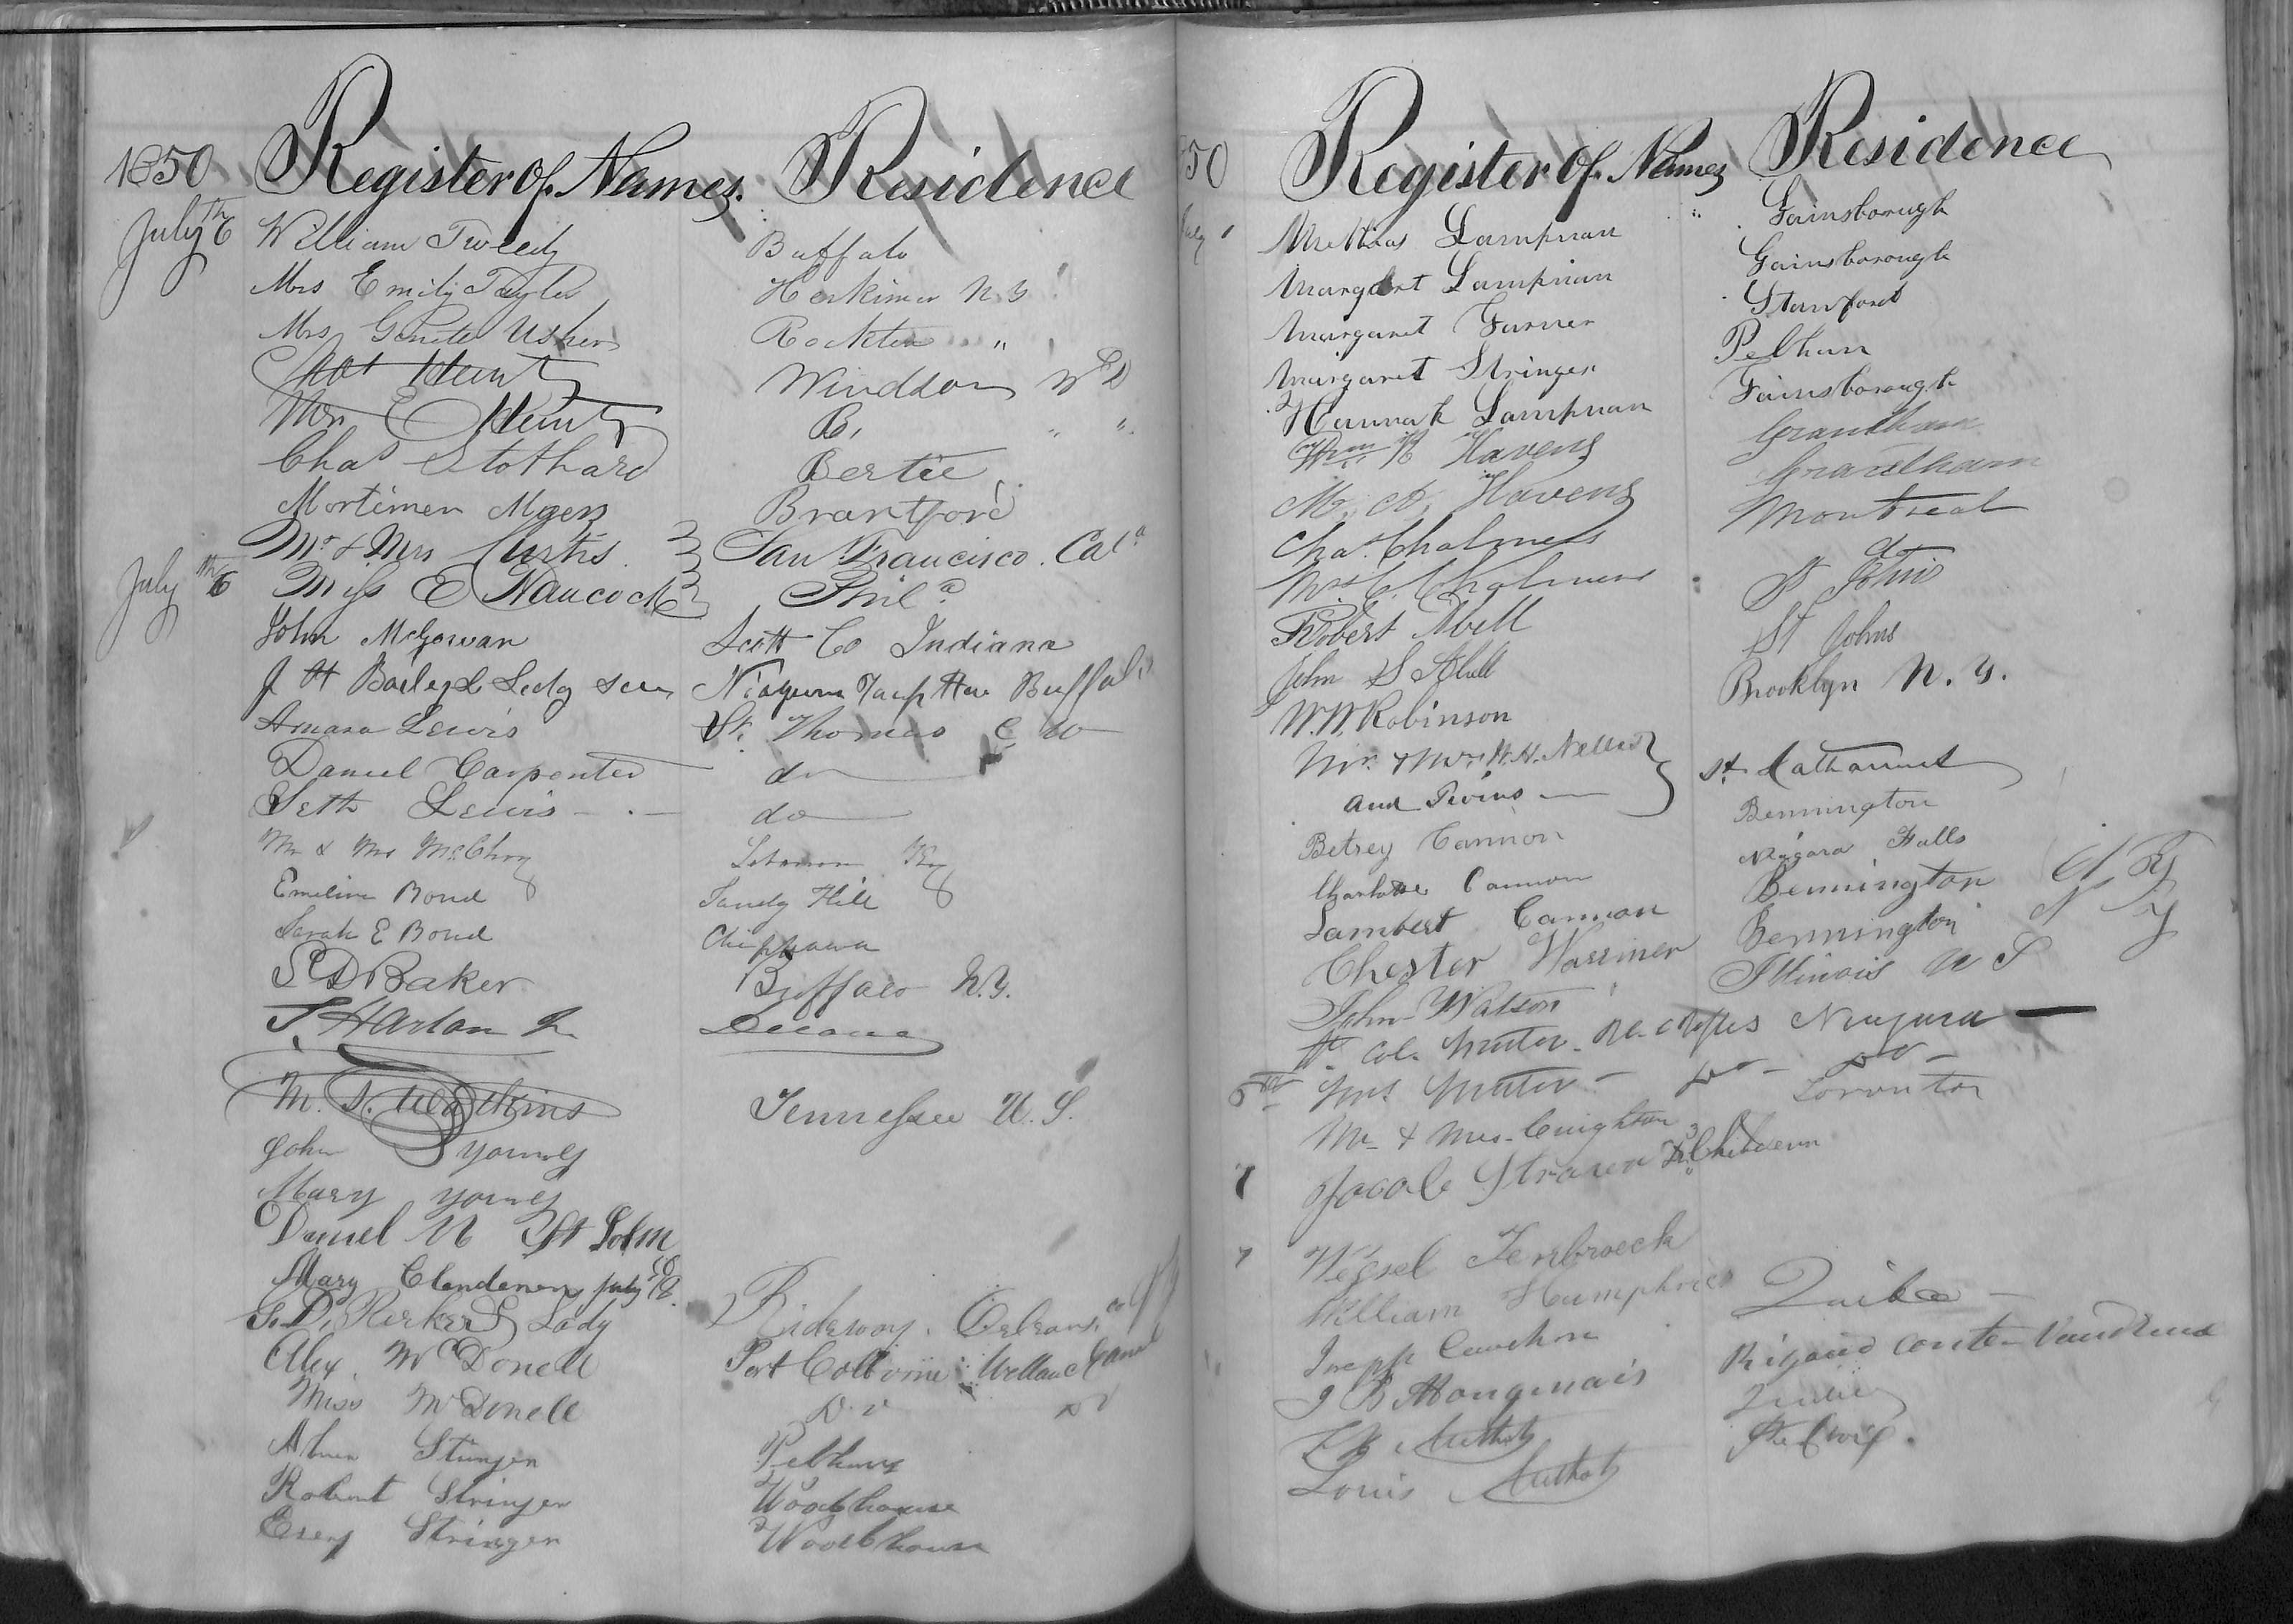 1850 Register Of Names. Residence
July 6th William Tweedy Buffalo
Mrs Emily Tayler Herkimer N Y
Mrs Usher Rockton "
Chas Hunt Winddom W D
Mrs E Hunt B, " "
Chas Stothard Bertie
Mortimer Myers Brantford
Mr & Mrs Curtis San Francisco. Cala
July 6th Miss E Hancock Phila
John McGowan Scott Co Indiana
J H Bailey & Lady Buffalo
Amasa Lewis St. Thomas C W
Daniel Carpenter do
Seth Lewis do
Mr & Mrs McChoy Lebanon Ky
Emeline Bond Sandy Hill
Sarah E Bond Chippawa
S D Baker Buffalo N.Y.
S. Harlan
M. S. Watkins Tennessee U. S.
John Young
Mary Young
Daniel N St John
Mary Clendenen July
Parker & Lady Ridgway. Orleans co N Y
Alex McDonell Port Colborne Welland Canal
Miss McDonell Do do
Stringer Pelham
Robert Stringer Woodhouse
Esery Stringer Woodhouse
50 Register Of Names Residence
July Mathias Lampman Gainsborough
Margaret Lampman Gainsborough
Margaret Garner Stamford
Margaret Stringer Pelham
Hannah Lampman Gainsborough
Wm H Havens Grantham
M. A. Havens Grantham
Chas. Chalmers Montreal
Mrs C. Chalmers do
Robert Abell St Johns
John S Abell St Johns
W. W. Robinson Brooklyn N. Y.
Mr. & Mrs. W. H. Nelles
and Twins St Catharines
Betsey Cannon Bennington
Charlotte Cannon Niagara Falls
Lambert Cannon Bennington N Y
Chester Warriner Bennington N Y
John Watson Illinois U S
Lt Col. Muter Rl. C Rifles Niagara
Mrs Muter - do - do -
Mr & Mrs Creighton Toronto
7 Jacob Strawn & 3 Children
7 Wessel Tenbroeck
William Humphries
Joseph Cauchon Quebec
J B Mongenais Rigaud Vaudreuil
Louis